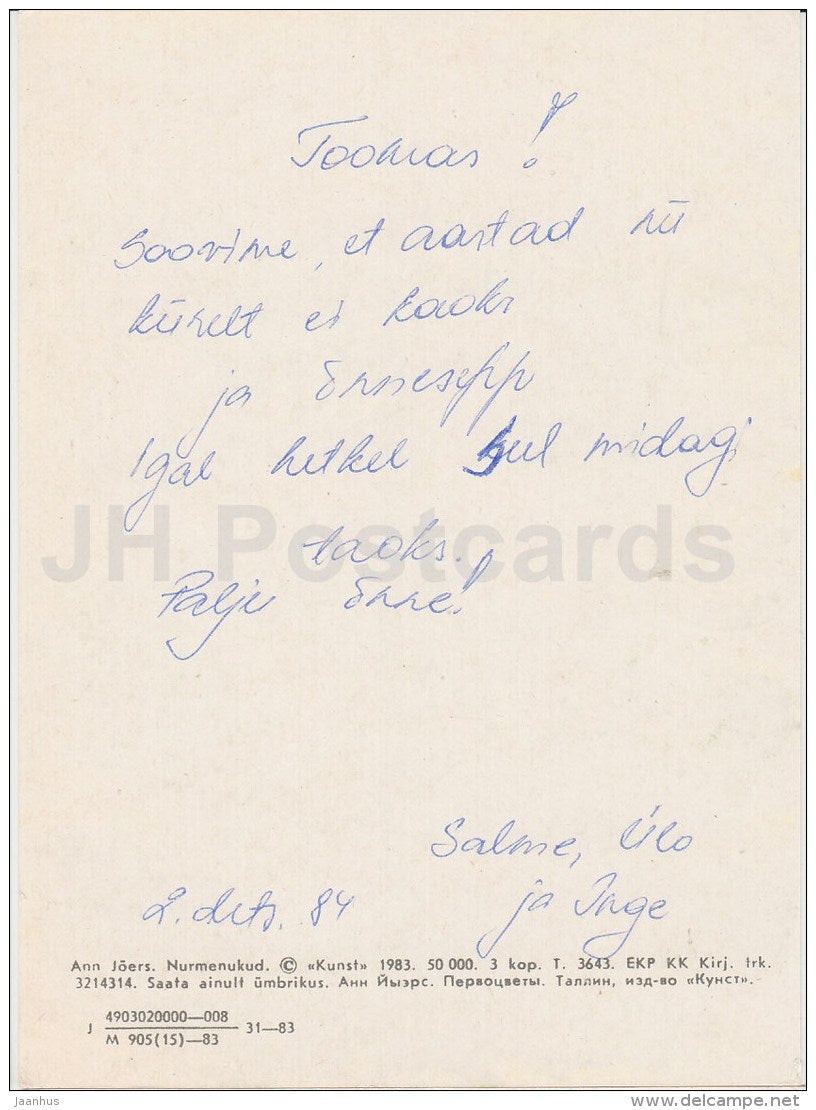 Toomas!
Soovime, et aastad nii
kiirelt ei kaoks
ja õnnesepp
Igal hetkel sul midagi
taoks.
Palju õnne!
Salme, Ülo
ja Inge
2. dets. 84
JH Postcards
Ann Jõers. Nurmenukud. © «Kunst» 1983. 50 000. 3 kop. T. 3643. EKP KK Kirj. trk.
3214314. Saata ainult ümbrikus. Анн Йыэрс. Первоцветы. Таллин, изд-во «Кунст».
J 4903020000—008 31—83
M 905(15)—83
Jaanhus
www.delcampe.net